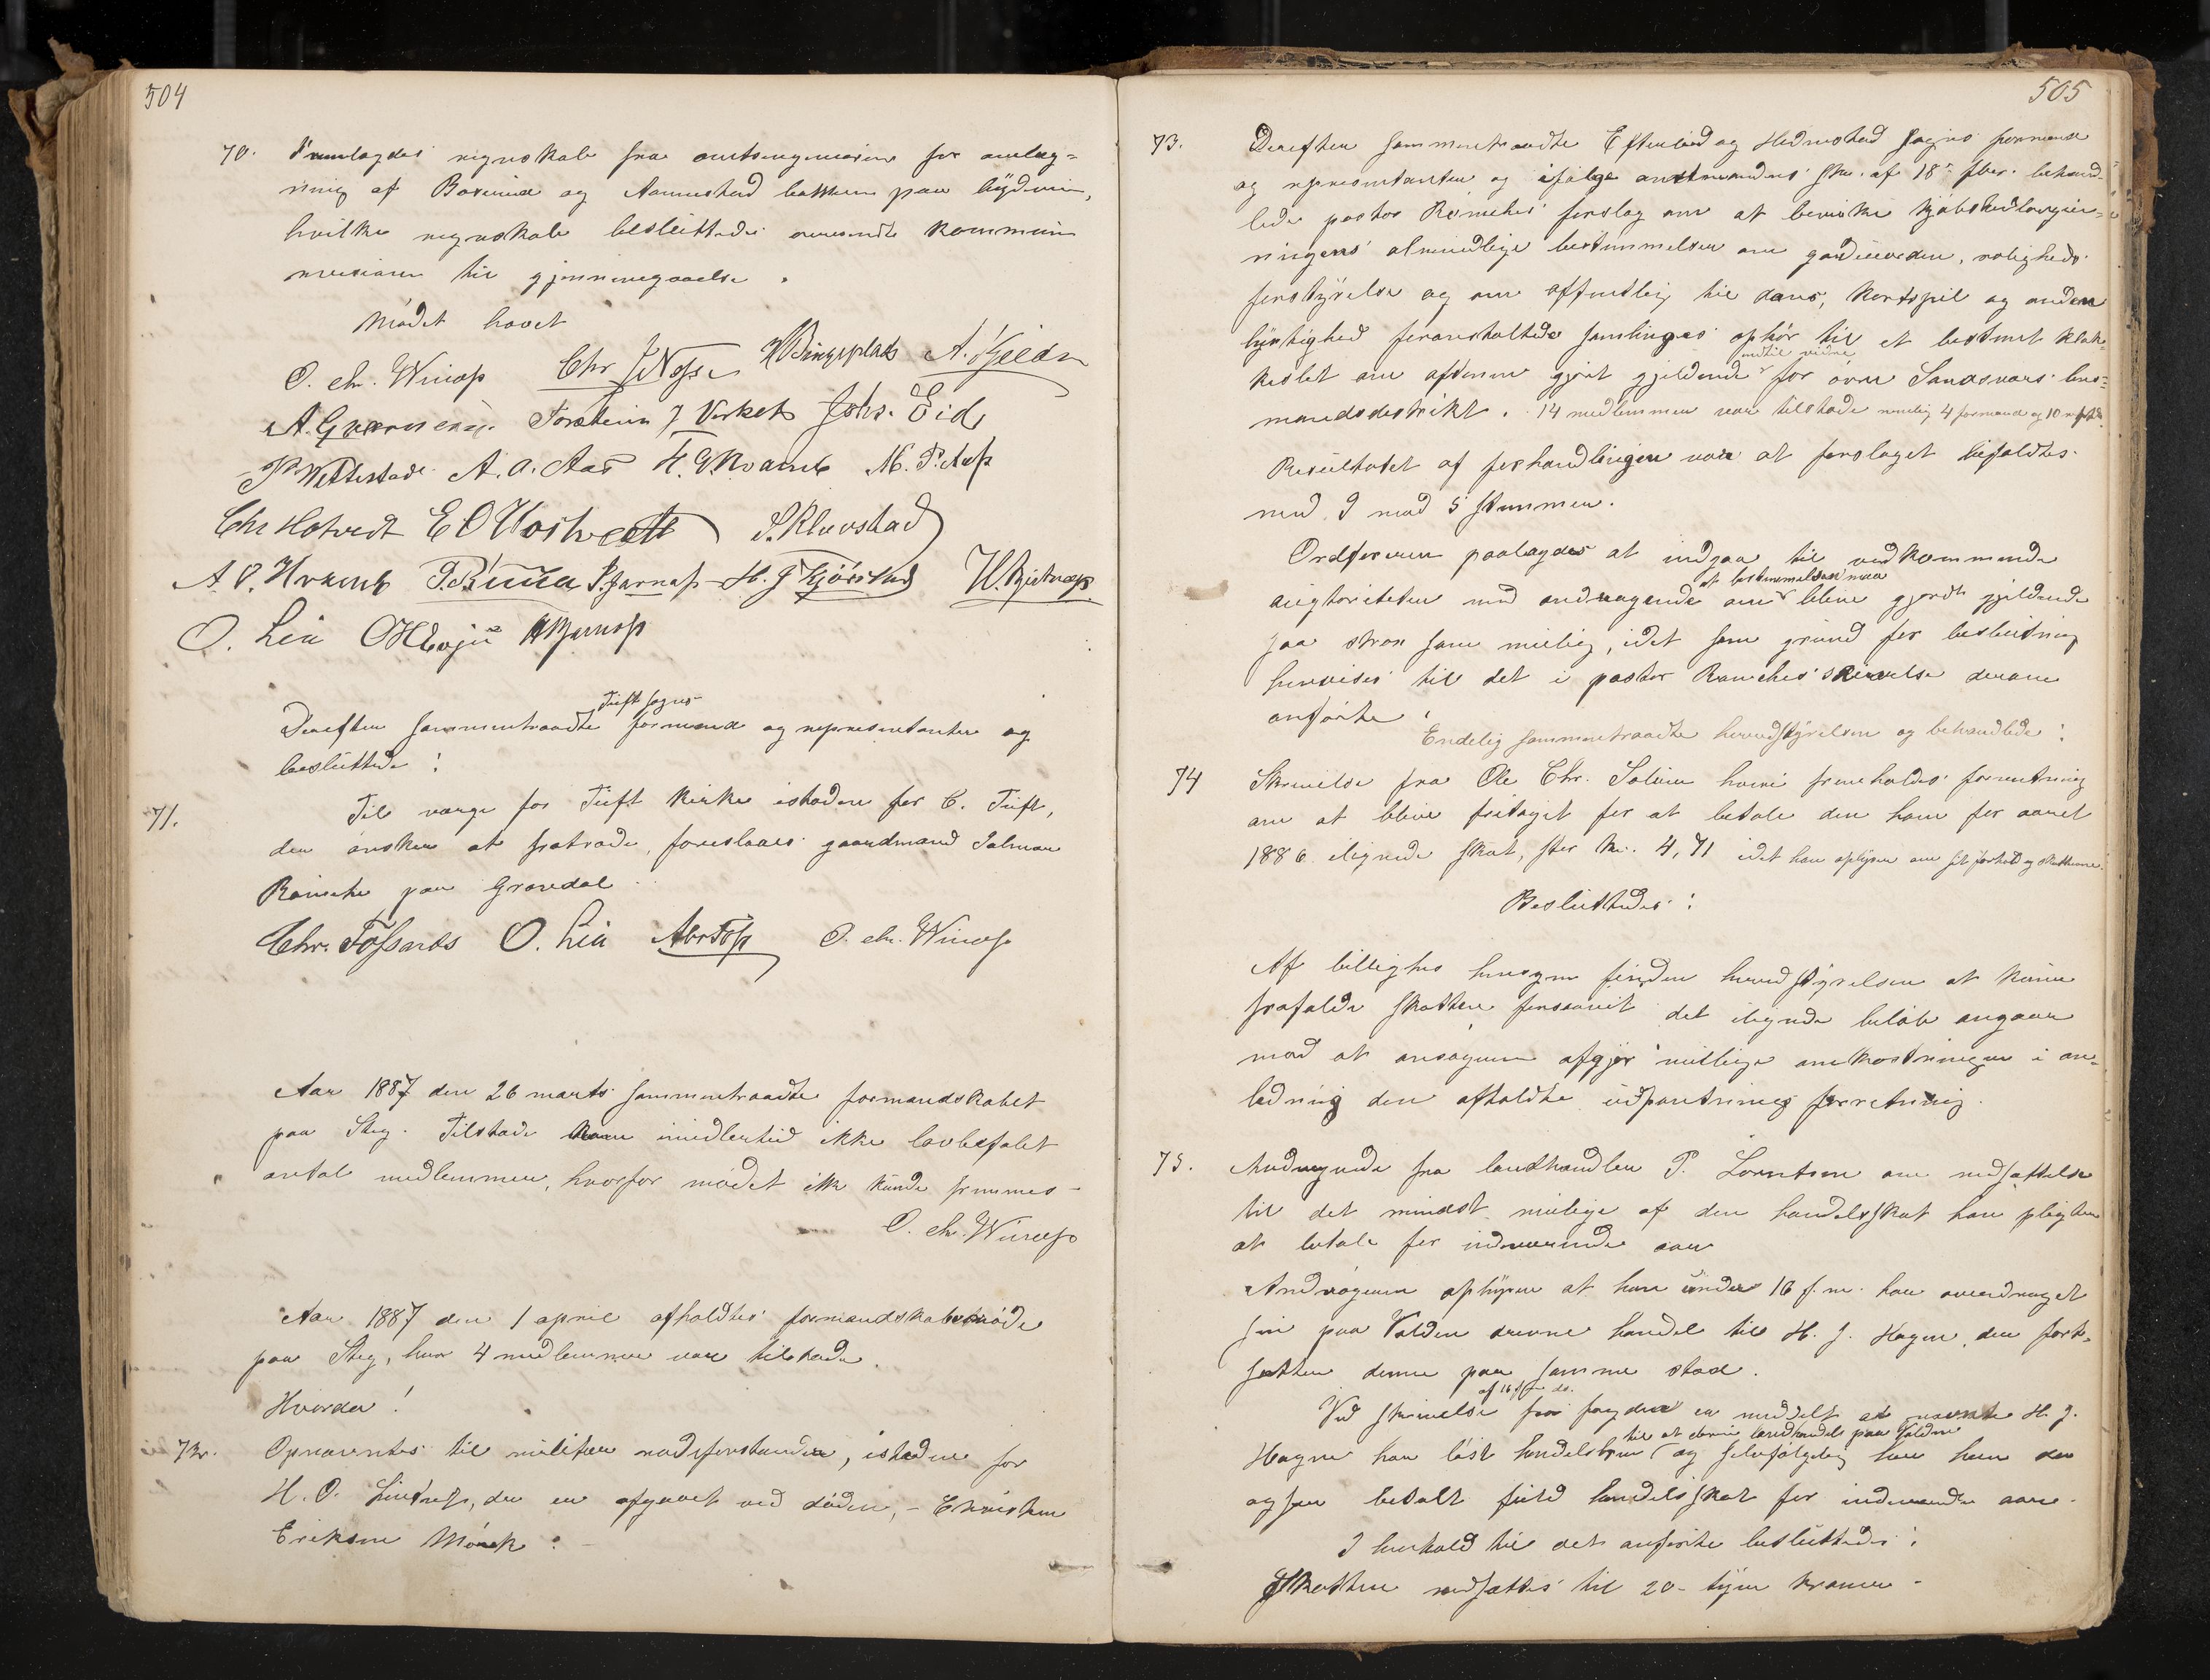 504
70. Fremlagdes regnskab fra amtsingeniøren for anlæg-
ning af Borerud og Aannestad bakken paa bygdevei,
hvilke regnskab besluttedes oversendt kommune
revisionen til gjennemgaaelse.
Mødet hævet
O. Chr. Winøss Chr J A. Kjeldsen
A. Torstein J Verket Johs. Eid
P. Wetterstad A. A. Aas H. G. Kvamb M. P. Aass
Chr Hotvedt E O Hostvedt S. Kluvstad
A. O. Kvamb P. Jarnæss H. J. Gjørstad
O. Lia
Tuft sogns
Derefter sammentraadte formænd og repræsentanter og
besluttede:
71. Til værge for Tuft kirke istedenfor C. Tuft,
der ønsker at fratræde, foreslaaes gaardmand Salmon
paa Gravdal
Chr. Fossnæs O. Lia O. Chr. Winøss
Aar 1887 den 26 marts sammentraadte formandskabet
paa Steg. Tilstæde kom imidlertid ikke lovbefalet
antal medlemmer, hvorfor mødet ikke kunde fremmes
O. Chr. Winøss
Aar 1887 den 1 april afholdtes formandskabsmøde
paa Steg, hvor 4 medlemmer var tilstæde.
Hvorda!
72. Opnævntes til militær rodeforstander, istedenfor
H. O. der er afgaaet ved døden, - Christen
Eriksen Mørck.
505
73. Derefter sammentraadte Efteløt og Hedenstad sogns formænd
og repræsentanter og ifølge amtmandens skr. af 18de fbr. behand-
lede pastor forslag om at bevirke kjøbstadlovgiv-
ningens almindelige bestemmelser om gadeuorden, rolighedsforstyrrelse og om offentlig til dans, kortspil og anden
lystighed foranstaltede samlinges ophør til et bestemt klok-
indtil videre
keslet om aftenen gjort gjældende for øvre Sandsværs lens-
mandsdistrikt. 14 medlemmer var tilstæde nemlig 4 formænd og 10 repr.
Resultatet af forhandlingen var at forslaget bifaldtes
med 9 mod 5 stemmer.
Ordføreren paalagdes at indgaa til vedkommende
at bestemmelsen maa
augtoriteter med andragende om blive gjort gjældende
saa strax som mulig, idet som grund for beslutning
henvises til det i pastor skrivelse derom
anførte.
Endelig sammentraadte herredsstyrelsen og behandlede:
74 Skrivelse fra Ole Chr. Solum hvori fremholdes formening
om at blive fritaget for at betale den ham for aaret
1886 ilignede skat, stor kr. 4,71 idet han oplyser om sit forhold og skatterne.
Besluttedes:
Af billigheds hensyn finder herredsstyrelsen at kunne
frafalde skatten forsaavit det ilignede beløb angaar
mod at ansøgeren afgjør mulige omkostninger i an-
ledning den afholdte udpantnings forretning.
75. Andragende fra landhandler P. Lorentsen om nedsættelse
til det mindst mulige af den handelsskat han pligter
at betale for indeværende aar
Andrageren oplyser at han under 16 f. m. har overdraget
sin paa Volden drevne handel til H. J. Hagen, der fort-
sætter denne paa samme sted.
af 16 ds.
Ved skrivelse fra fogden er meddelt at nævnte H. J.
til at drive landhandel paa Volden
Hagen har løst handelsbrev og selvfølgelig har han da
ogsaa betalt fuld handelsskat for indeværende aar.
I henhold til det anførte besluttedes:
Skatten nedsættes til 20 - tyve kroner -